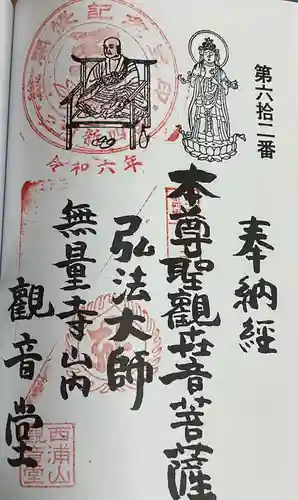 第六拾二番
奉納経
本尊聖觀世音菩薩
弘法大師
無量寺山内
觀音堂
令和六年
西浦山
觀音堂